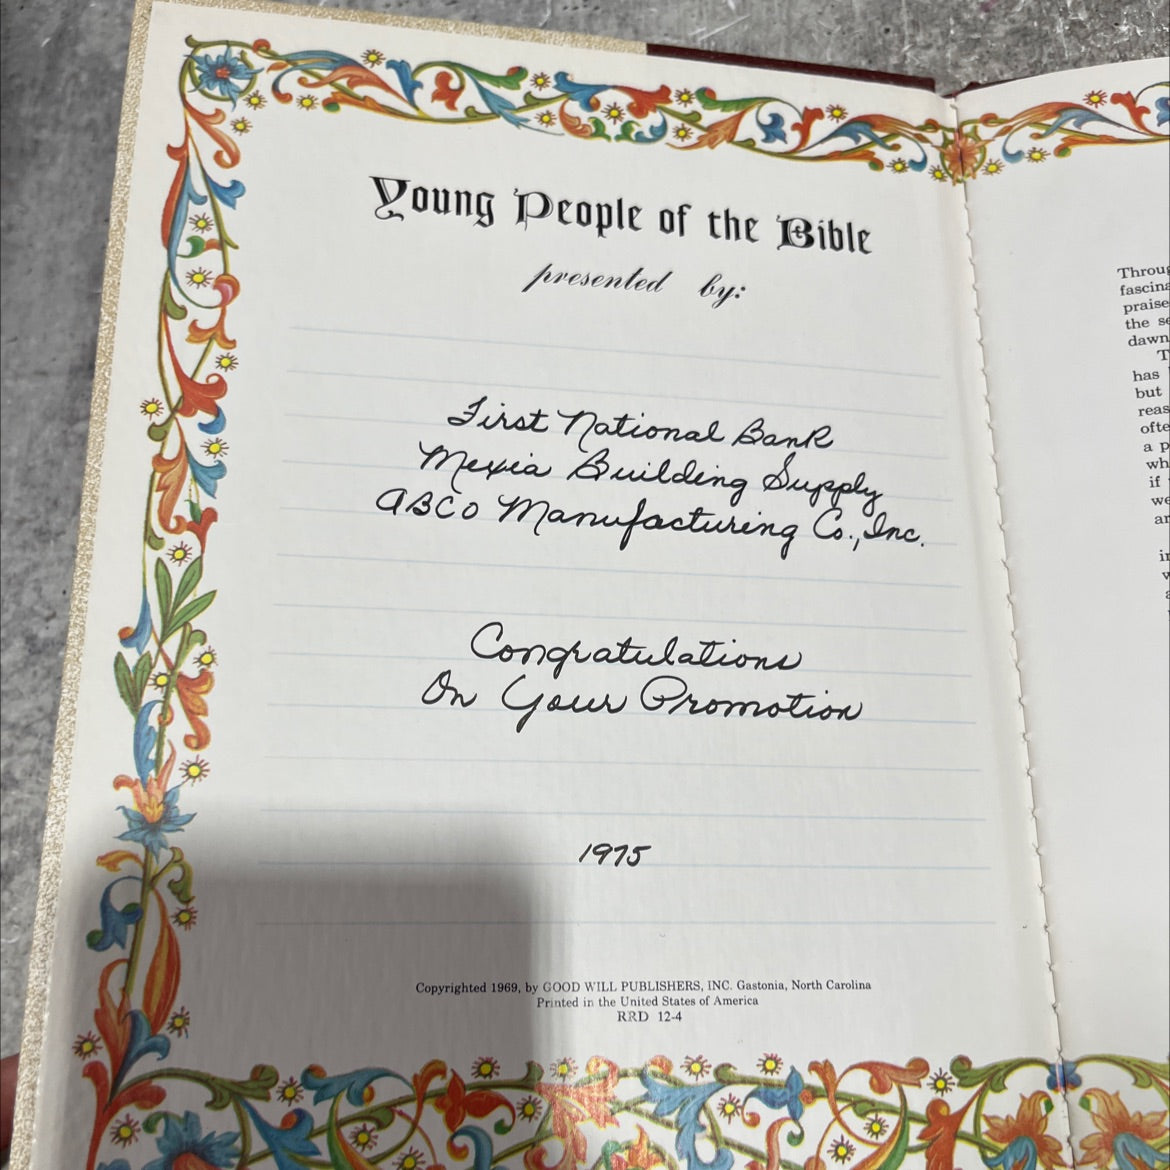 Young People of the Bible
presented by:
First National Bank
Mexia Building Supply
ABCO Manufacturing Co., Inc.
Congratulations
On Your Promotion
1975
Copyrighted 1969, by GOOD WILL PUBLISHERS, INC. Gastonia, North Carolina
Printed in the United States of America
RRD 12-4
Throu
fascina
praise
the se
dawn
T
has
but
reas
ofte
a p
wh
if
we
ar
in
w
a